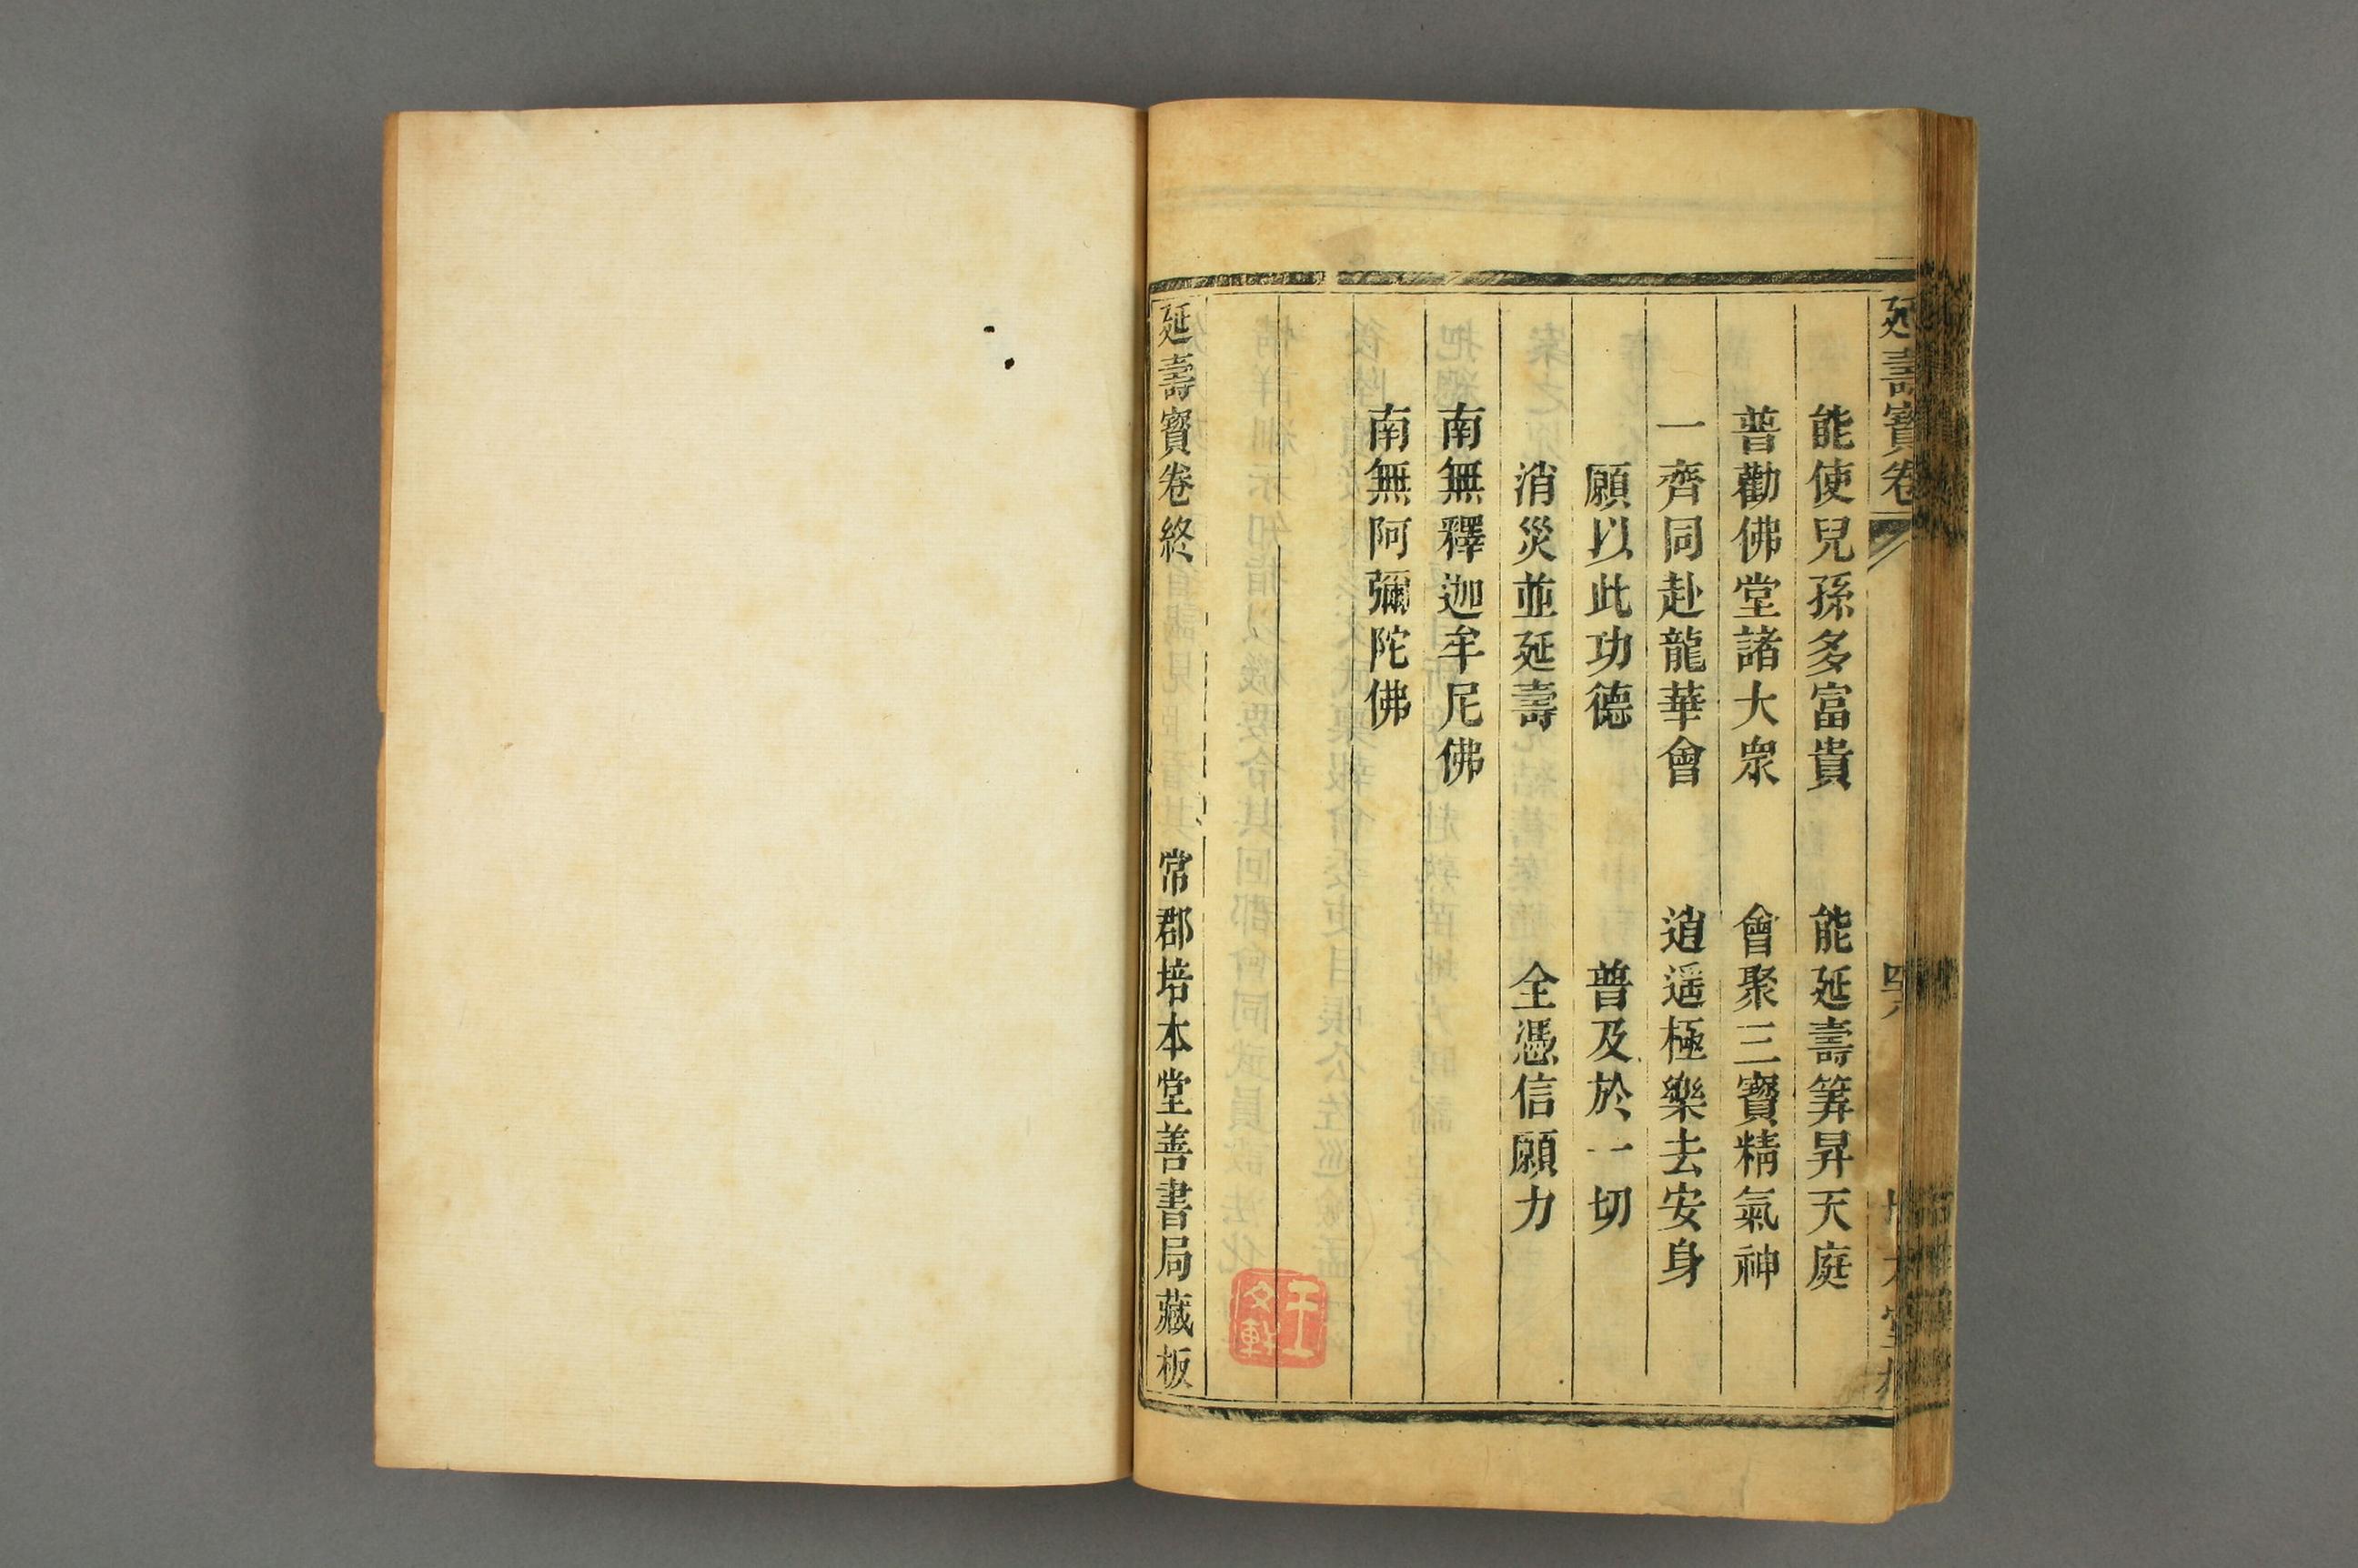 延壽寶卷
能使兒孫多富貴　能延壽筭昇天庭
普勸佛堂諸大衆　會聚三寶精氣神
一齊同赴龍華會　逍遥極樂去安身
願以此功德　普及於一切
消災並延壽　全憑信願力
南無釋迦牟尼佛
南無阿彌陀佛
延壽寶卷終　常郡培本堂善書局藏板